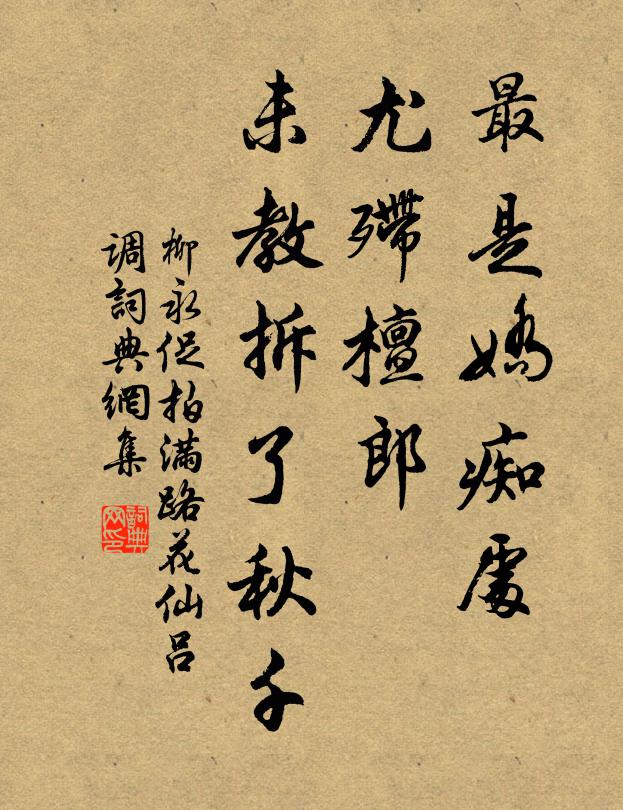 最是娇痴處
尤殢檀郎
未教拆了秋千
柳永促拍满路花仙吕
调詞典網集
詞典网印